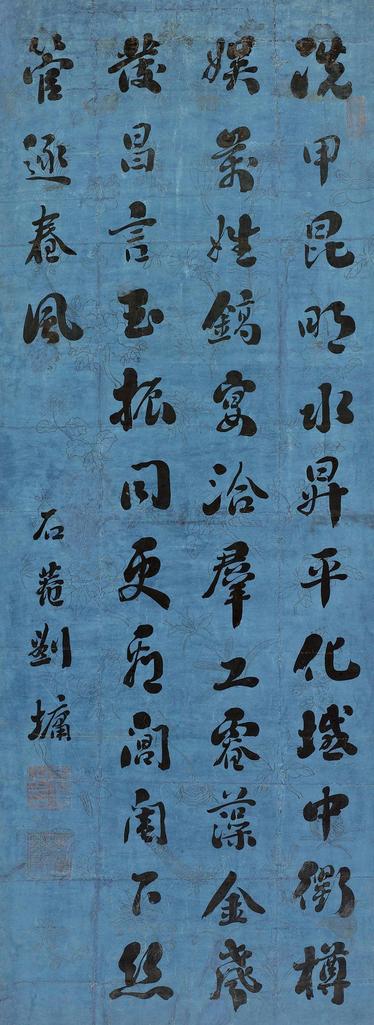 洗甲昆明水昇平化域中衢樽
娛萬姓鎬宴洽羣工睿藻金聲
發昌言玉振同更看閶闔下絲
管逐春風
石菴劉墉